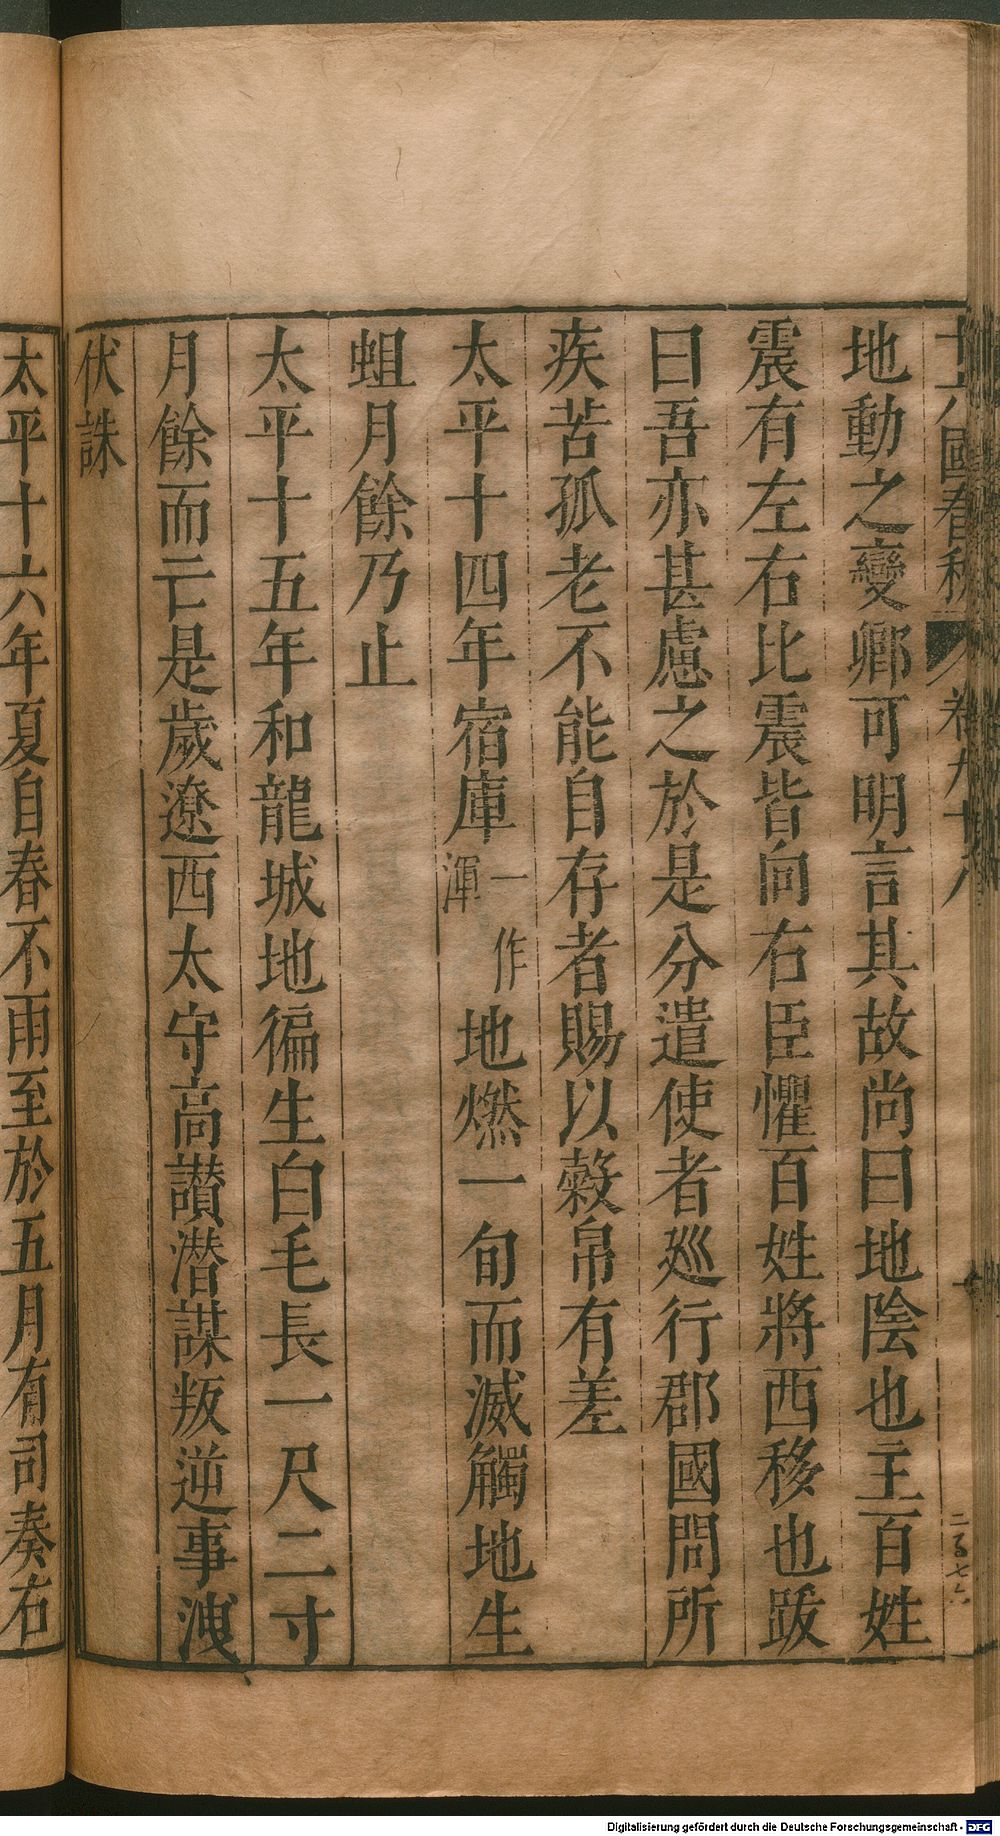 十六國春秋 卷九十八
地動之變卿可明言其故尚曰地陰也主百姓
震有左右比震皆向右臣懼百姓將西移也跋
曰吾亦甚慮之於是分遣使者廵行郡國問所
疾苦孤老不能自存者賜以榖帛有差
太平十四年宿庫一作渾地燃一旬而滅觸地生
蛆月餘乃止
太平十五年和龍城地徧生白毛長一尺二寸
月餘而亡是歲遼西太守高讃潜謀叛逆事洩
伏誅
太平十六年夏自春不雨至於五月有司奏右
Digitalisierung gefördert durch die Deutsche Forschungsgemeinschaft - DFG